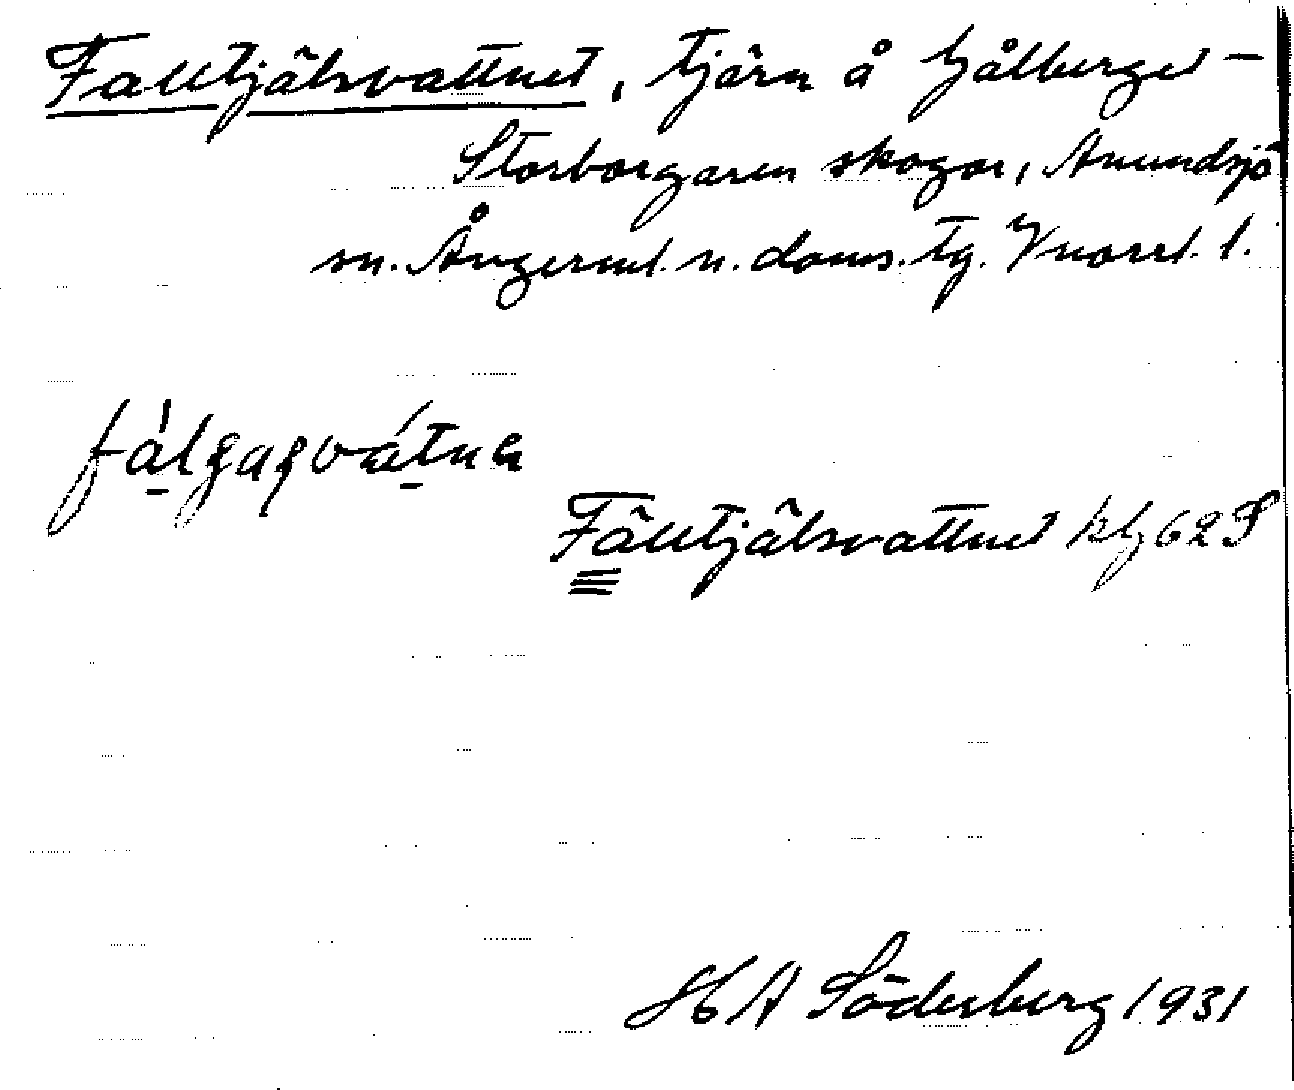 Falltjälsvattnet, tjärn å Kjålberget -
Storborgaren skogar, Anundsjö
sn. Ångerml. n. doms. tg. V norrl. l.
Fälltjälsvattnet kbl 62 S
H A Söderberg 1931